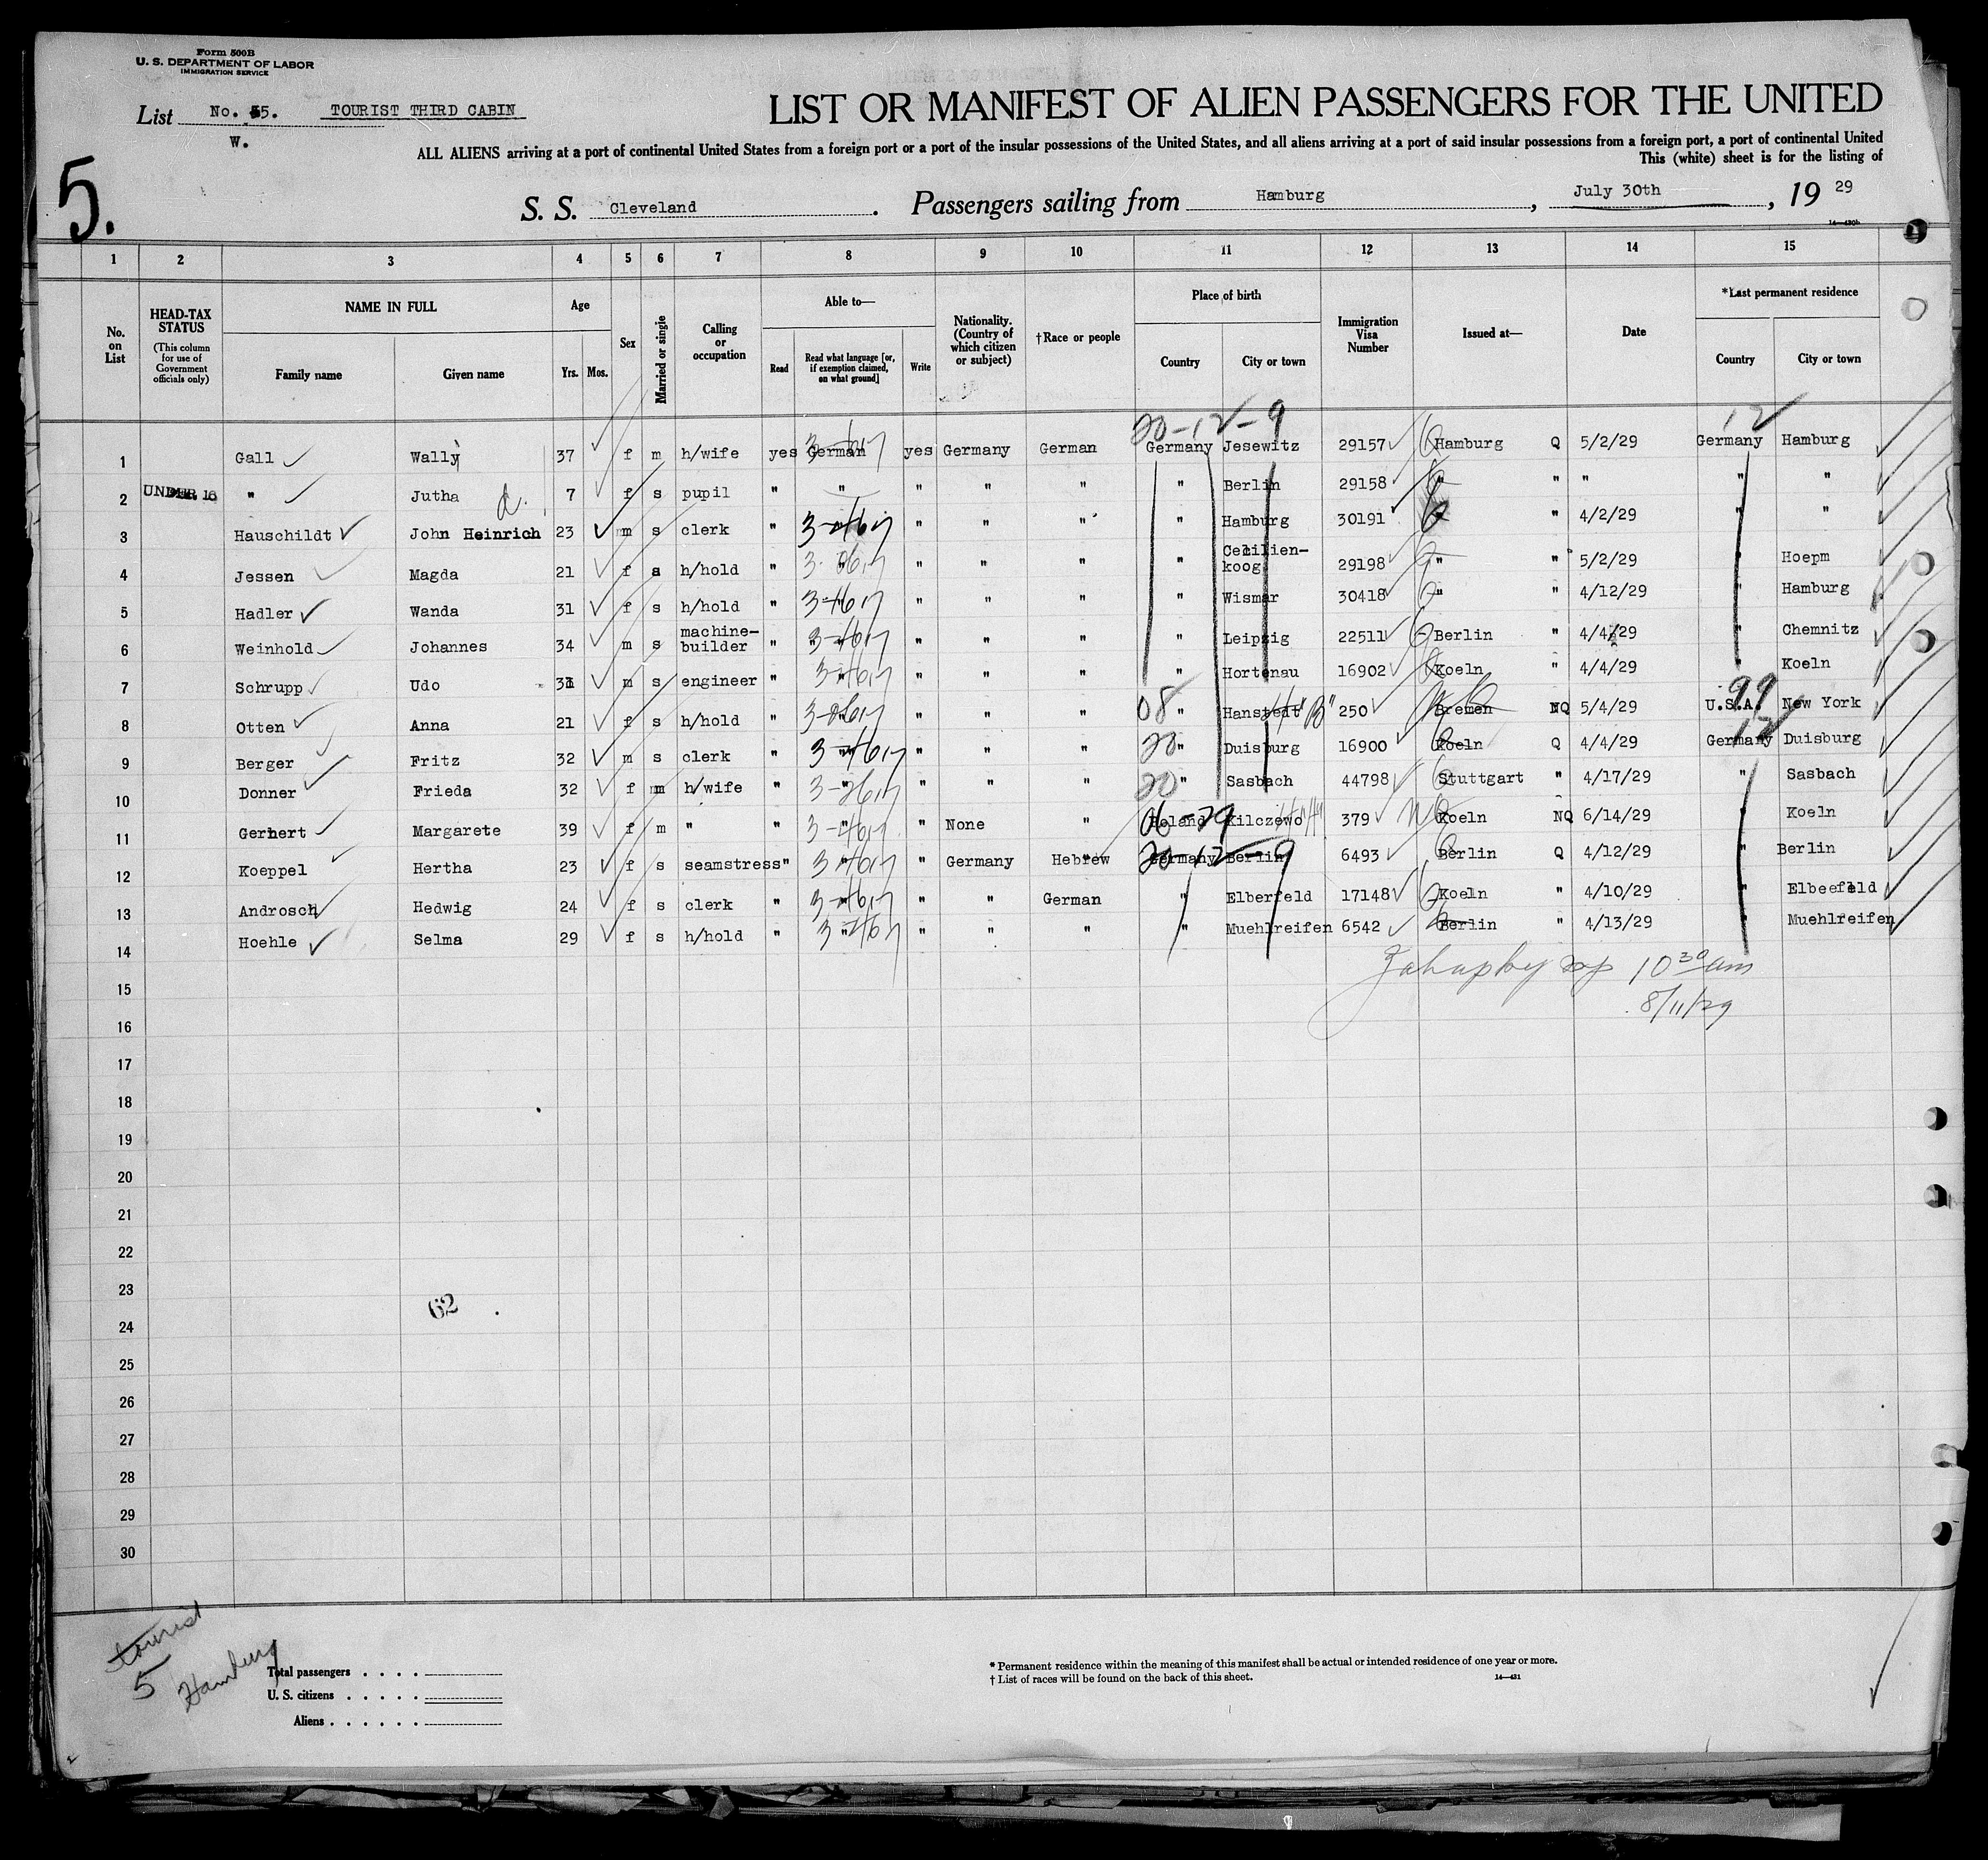 Form 500B
U. S. DEPARTMENT OF LABOR
IMMIGRATION SERVICE
List No. 55. TOURIST THIRD CABIN
W.
5.
LIST OR MANIFEST OF ALIEN PASSENGERS FOR THE UNITED
ALL ALIENS arriving at a port of continental United States from a foreign port or a port of the insular possessions of the United States, and all aliens arriving at a port of said insular possessions from a foreign port, a port of continental United
This (white) sheet is for the listing of
S. S. Cleveland. Passengers sailing from Hamburg, July 30th, 19 29
14—430b
1 2 3 4 5 6 7 8 9 10 11 12 13 14 15
No. on List
HEAD-TAX STATUS
(This column for use of Government officials only)
NAME IN FULL
Family name Given name
Age
Yrs. Mos.
Sex
Married or single
Calling or occupation
Able to—
Read
Read what language [or, if exemption claimed, on what ground]
Write
Nationality. (Country of which citizen or subject)
†Race or people
Place of birth
Country City or town
Immigration Visa Number
Issued at—
Date
*Last permanent residence
Country City or town
20-12-9 12
1 Gall Wally 37 f m h/wife yes German yes Germany German Germany Jesewitz 29157 Hamburg Q 5/2/29 Germany Hamburg
2 UNDER 16 " Jutha d. 7 f s pupil " " " " " " Berlin 29158 " " " " "
3 Hauschildt John Heinrich 23 m s clerk " " " " " " Hamburg 30191 " 4/2/29 " "
4 Jessen Magda 21 f s h/hold " " " " " " Cecilien-koog 29198 " " 5/2/29 " Hoepm
5 Hadler Wanda 31 f s h/hold " " " " " " Wismar 30418 " " 4/12/29 " Hamburg
6 Weinhold Johannes 34 m s machine-builder " " " " " " Leipzig 22511 Berlin " 4/4/29 " Chemnitz
7 Schrupp Udo 31 m s engineer " " " " " " Hortenau 16902 Koeln " 4/4/29 " Koeln
8 Otten Anna 21 f s h/hold " " " " " 08 " Hanstedt "B" 250 Bremen NQ 5/4/29 99 U.S.A. New York
9 Berger Fritz 32 m s clerk " " " " " 20 " Duisburg 16900 Koeln Q 4/4/29 12 Germany Duisburg
10 Donner Frieda 32 f m h/wife " " " " " 20 " Sasbach 44798 Stuttgart " 4/17/29 " Sasbach
11 Gerhert Margarete 39 f m " " " " None " 06-29 Poland Kilczewo 379 Koeln NQ 6/14/29 " Koeln
12 Koeppel Hertha 23 f s seamstress " " " Germany Hebrew 20-12-9 Germany Berlin 6493 Berlin Q 4/12/29 " Berlin
13 Androsch Hedwig 24 f s clerk " " " " German " Elberfeld 17148 Koeln " 4/10/29 " Elbeefeld
14 Hoehle Selma 29 f s h/hold " " " " " " Muehlreifen 6542 Berlin " 4/13/29 " Muehlreifen
10 30 am
8/11/29
15
16
17
18
19
20
21
22
23
62
24
25
26
27
28
29
30
tourist
5 Hamburg
Total passengers
U. S. citizens
Aliens
* Permanent residence within the meaning of this manifest shall be actual or intended residence of one year or more.
† List of races will be found on the back of this sheet. 14—431